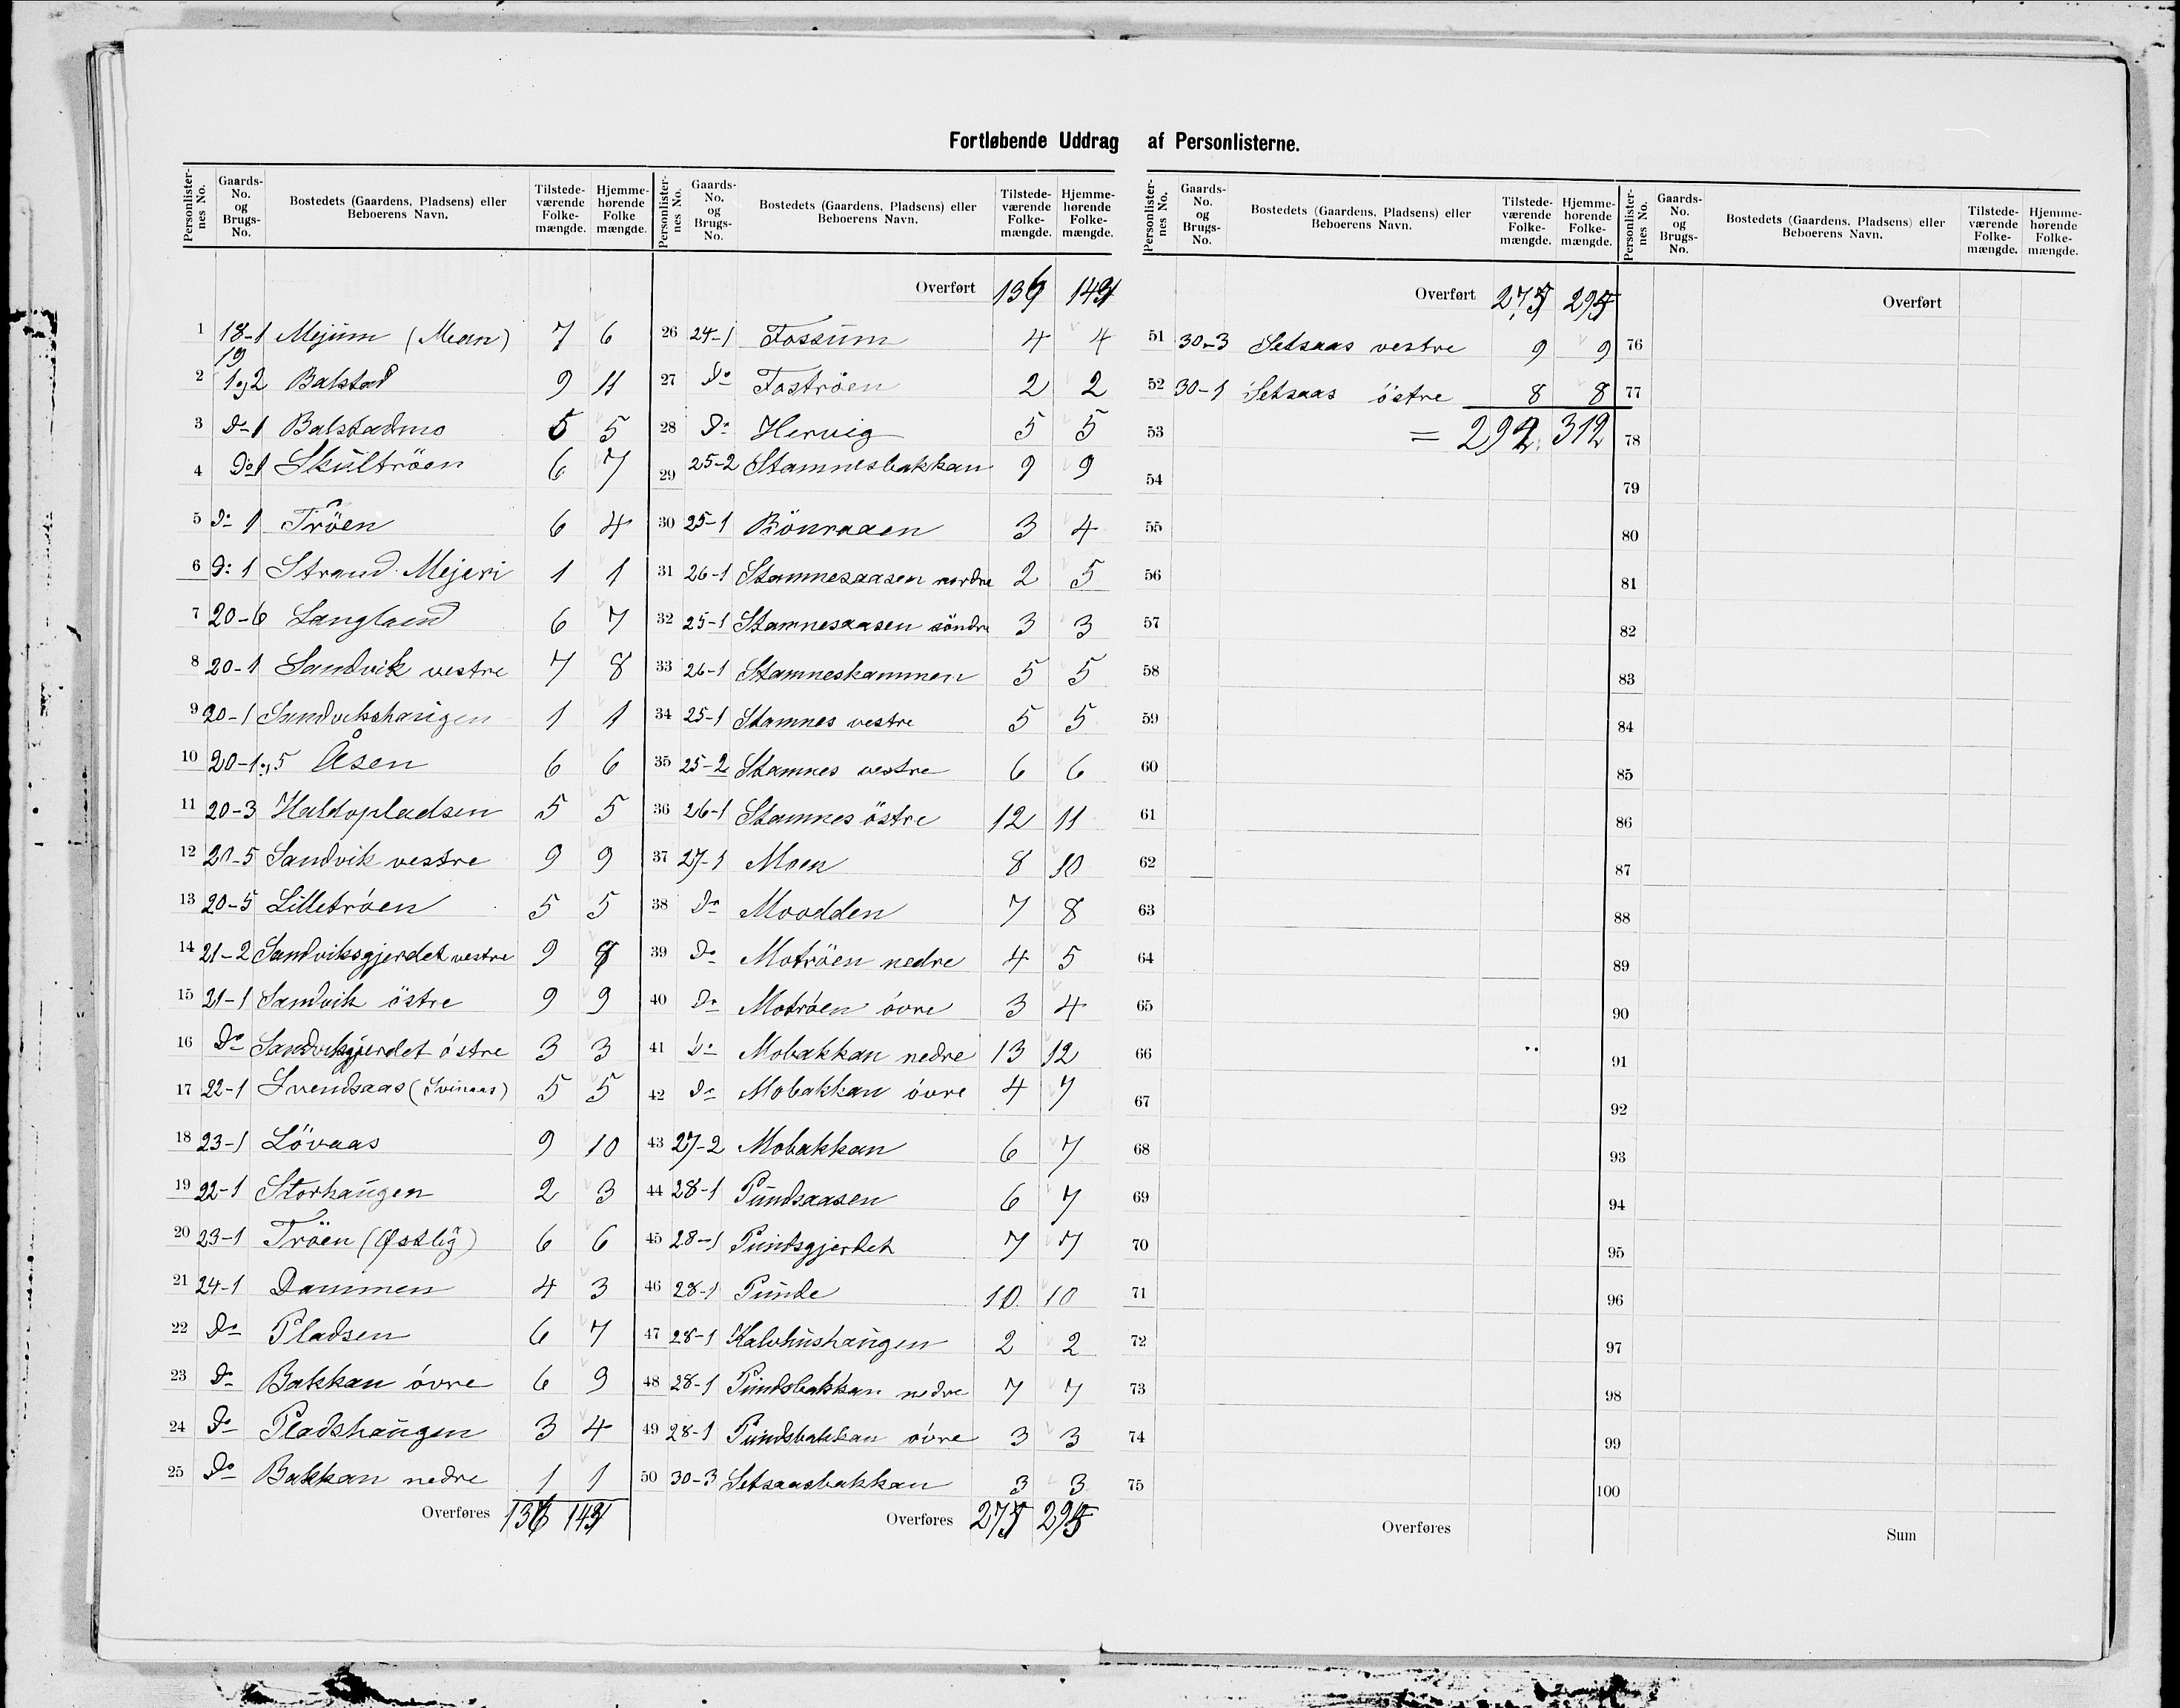 Fortløbende Uddrag af Personlisterne.
Personlisternes No. Gaards-No. og Brugs-No. Bostedets (Gaardens, Pladsens) eller Beboerens Navn. Tilstedeværende Folkemængde. Hjemmehørende Folke mængde.
1 18-1 Mejum (Mean) 7 6
2 19 1 og 2 Balstad 9 11
3 Do 1 Balstadmo 5 5
4 Do 1 Skultröen 6 7
5 Do 1 Tröen 6 4
6 Do 1 Strand Mejeri 1 1
7 20-6 Langland 6 7
8 20-1 Sandvik vestre 7 8
9 20-1 Sandvikshaugen 1 1
10 20-1 og 5 Åsen 6 6
11 20-3 Haldopladsen 5 5
12 20-5 Sandvik vestre 9 9
13 20-5 Lilletröen 5 5
14 21-2 Sandviksgjerdet vestre 9
15 21-1 Sandvik östre 9 9
16 Do Sandviksgjerdet östre 3 3
17 22-1 Svendsaas (Svinaas) 5 5
18 23-1 Lövaas 9 10
19 22-1 Storhaugen 2 3
20 23-1 Tröen (Østlig) 6 6
21 24-1 Dammen 4 3
22 Do Pladsen 6 7
23 Do Bakkan övre 6 9
24 Do Pladshaugen 3 4
25 Do Bakkan nedre 1 1
Overføres
Personlisternes No. Gaards-No. og Brugs-No. Bostedets (Gaardens, Pladsens) eller Beboerens Navn. Tilstedeværende Folkemængde. Hjemmehørende Folkemængde.
Overført
26 24-1 Fossum 4 4
27 Do Foströen 2 2
28 Do Hervig 5 5
29 25-2 Stamnesbakkan 9 9
30 25-1 Rönraaen 3 4
31 26-1 Stamnesaasen nordre 2 5
32 25-1 Stamnesaasen söndre 3 3
33 26-1 Stamneskammen 5 5
34 25-1 Stamnes vestre 5 5
35 25-2 Stamnes vestre 6 6
36 26-1 Stamnes östre 12 11
37 27-1 Moen 8 10
38 Do Moodden 7 8
39 Do Motröen nedre 4 5
40 Do Motröen övre 3 4
41 Do Mobakkan nedre 13 12
42 Do Mobakkan övre 4 7
43 27-2 Mobakkan 6 7
44 28-1 Pundsaasen 6 7
45 28-1 Pundsgjerdet 7 7
46 28-1 Punde 10 10
47 28-1 Kalvhushaugen 2 2
48 28-1 Pundsbakkan nedre 7 7
49 28-1 Pundsbakkan övre 3 3
50 30-3 Setsaasbakkan 3 3
Overføres
Personlisternes No. Gaards-No. og Brugs-No. Bostedets (Gaardens, Pladsens) eller Beboerens Navn. Tilstedeværende Folkemængde. Hjemmehørende Folkemængde.
Overført
51 30-3 Setsaas vestre 9 9
52 30-1 Setsaas östre 8 8
53 = 312
54
55
56
57
58
59
60
61
62
63
64
65
66
67
68
69
70
71
72
73
74
75
Overføres
Personlisternes No. Gaards-No. og Brugs-No. Bostedets (Gaardens, Pladsens) eller Beboerens Navn. Tilstedeværende Folkemængde. Hjemmehørende Folkemængde.
Overført
76
77
78
79
80
81
82
83
84
85
86
87
88
89
90
91
92
93
94
95
96
97
98
99
100
Sum